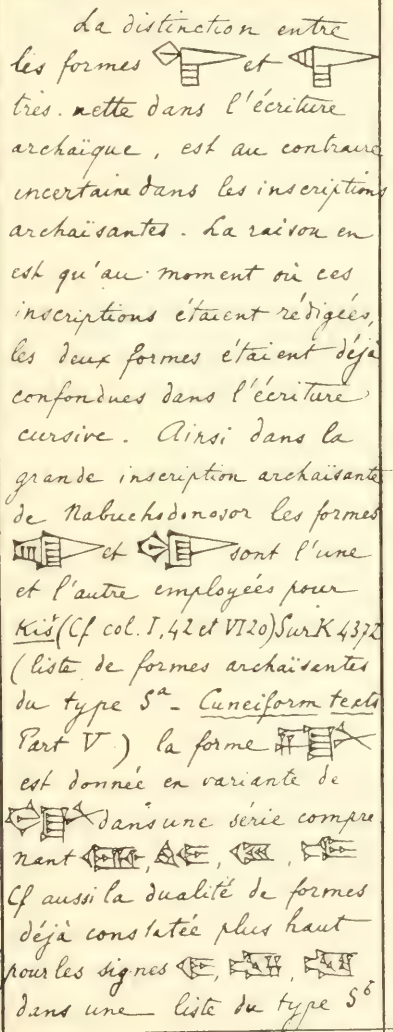 La distinction entre
les formes et
très nette dans l'écriture
archaïque, est au contraire
incertaine dans les inscriptions
archaïsantes. La raison en
est qu'au moment où ces
inscriptions étaient rédigées,
les deux formes étaient déjà
confondues dans l'écriture
cursive. Ainsi dans la
grande inscription archaïsante
de Nabuchodonosor les formes
et sont l'une
et l'autre employées pour
Kiš (Cf col. I, 42 et VI 20) Sur K 4372
(liste de formes archaïsantes
du type Sᵃ - Cuneiform texts
Part V) la forme
est donnée en variante de
dans une série compre
nant , , ,
Cf aussi la dualité de formes
déjà constatée plus haut
pour les signes , ,
dans une liste du type Sᵇ